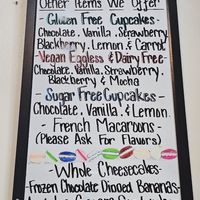 Other Items We Offer
- Gluten Free Cupcakes -
Chocolate, Vanilla, Strawberry,
Blackberry, Lemon, & Carrot
- Vegan Eggless & Dairy Free -
Chocolate, Vanilla, Strawberry
Blackberry & Mocha
- Sugar Free Cupcakes -
Chocolate, Vanilla, & Lemon
- French Macaroons -
(Please Ask For Flavors)
- Whole Cheesecakes -
- Frozen Chocolate Dipped Bananas -